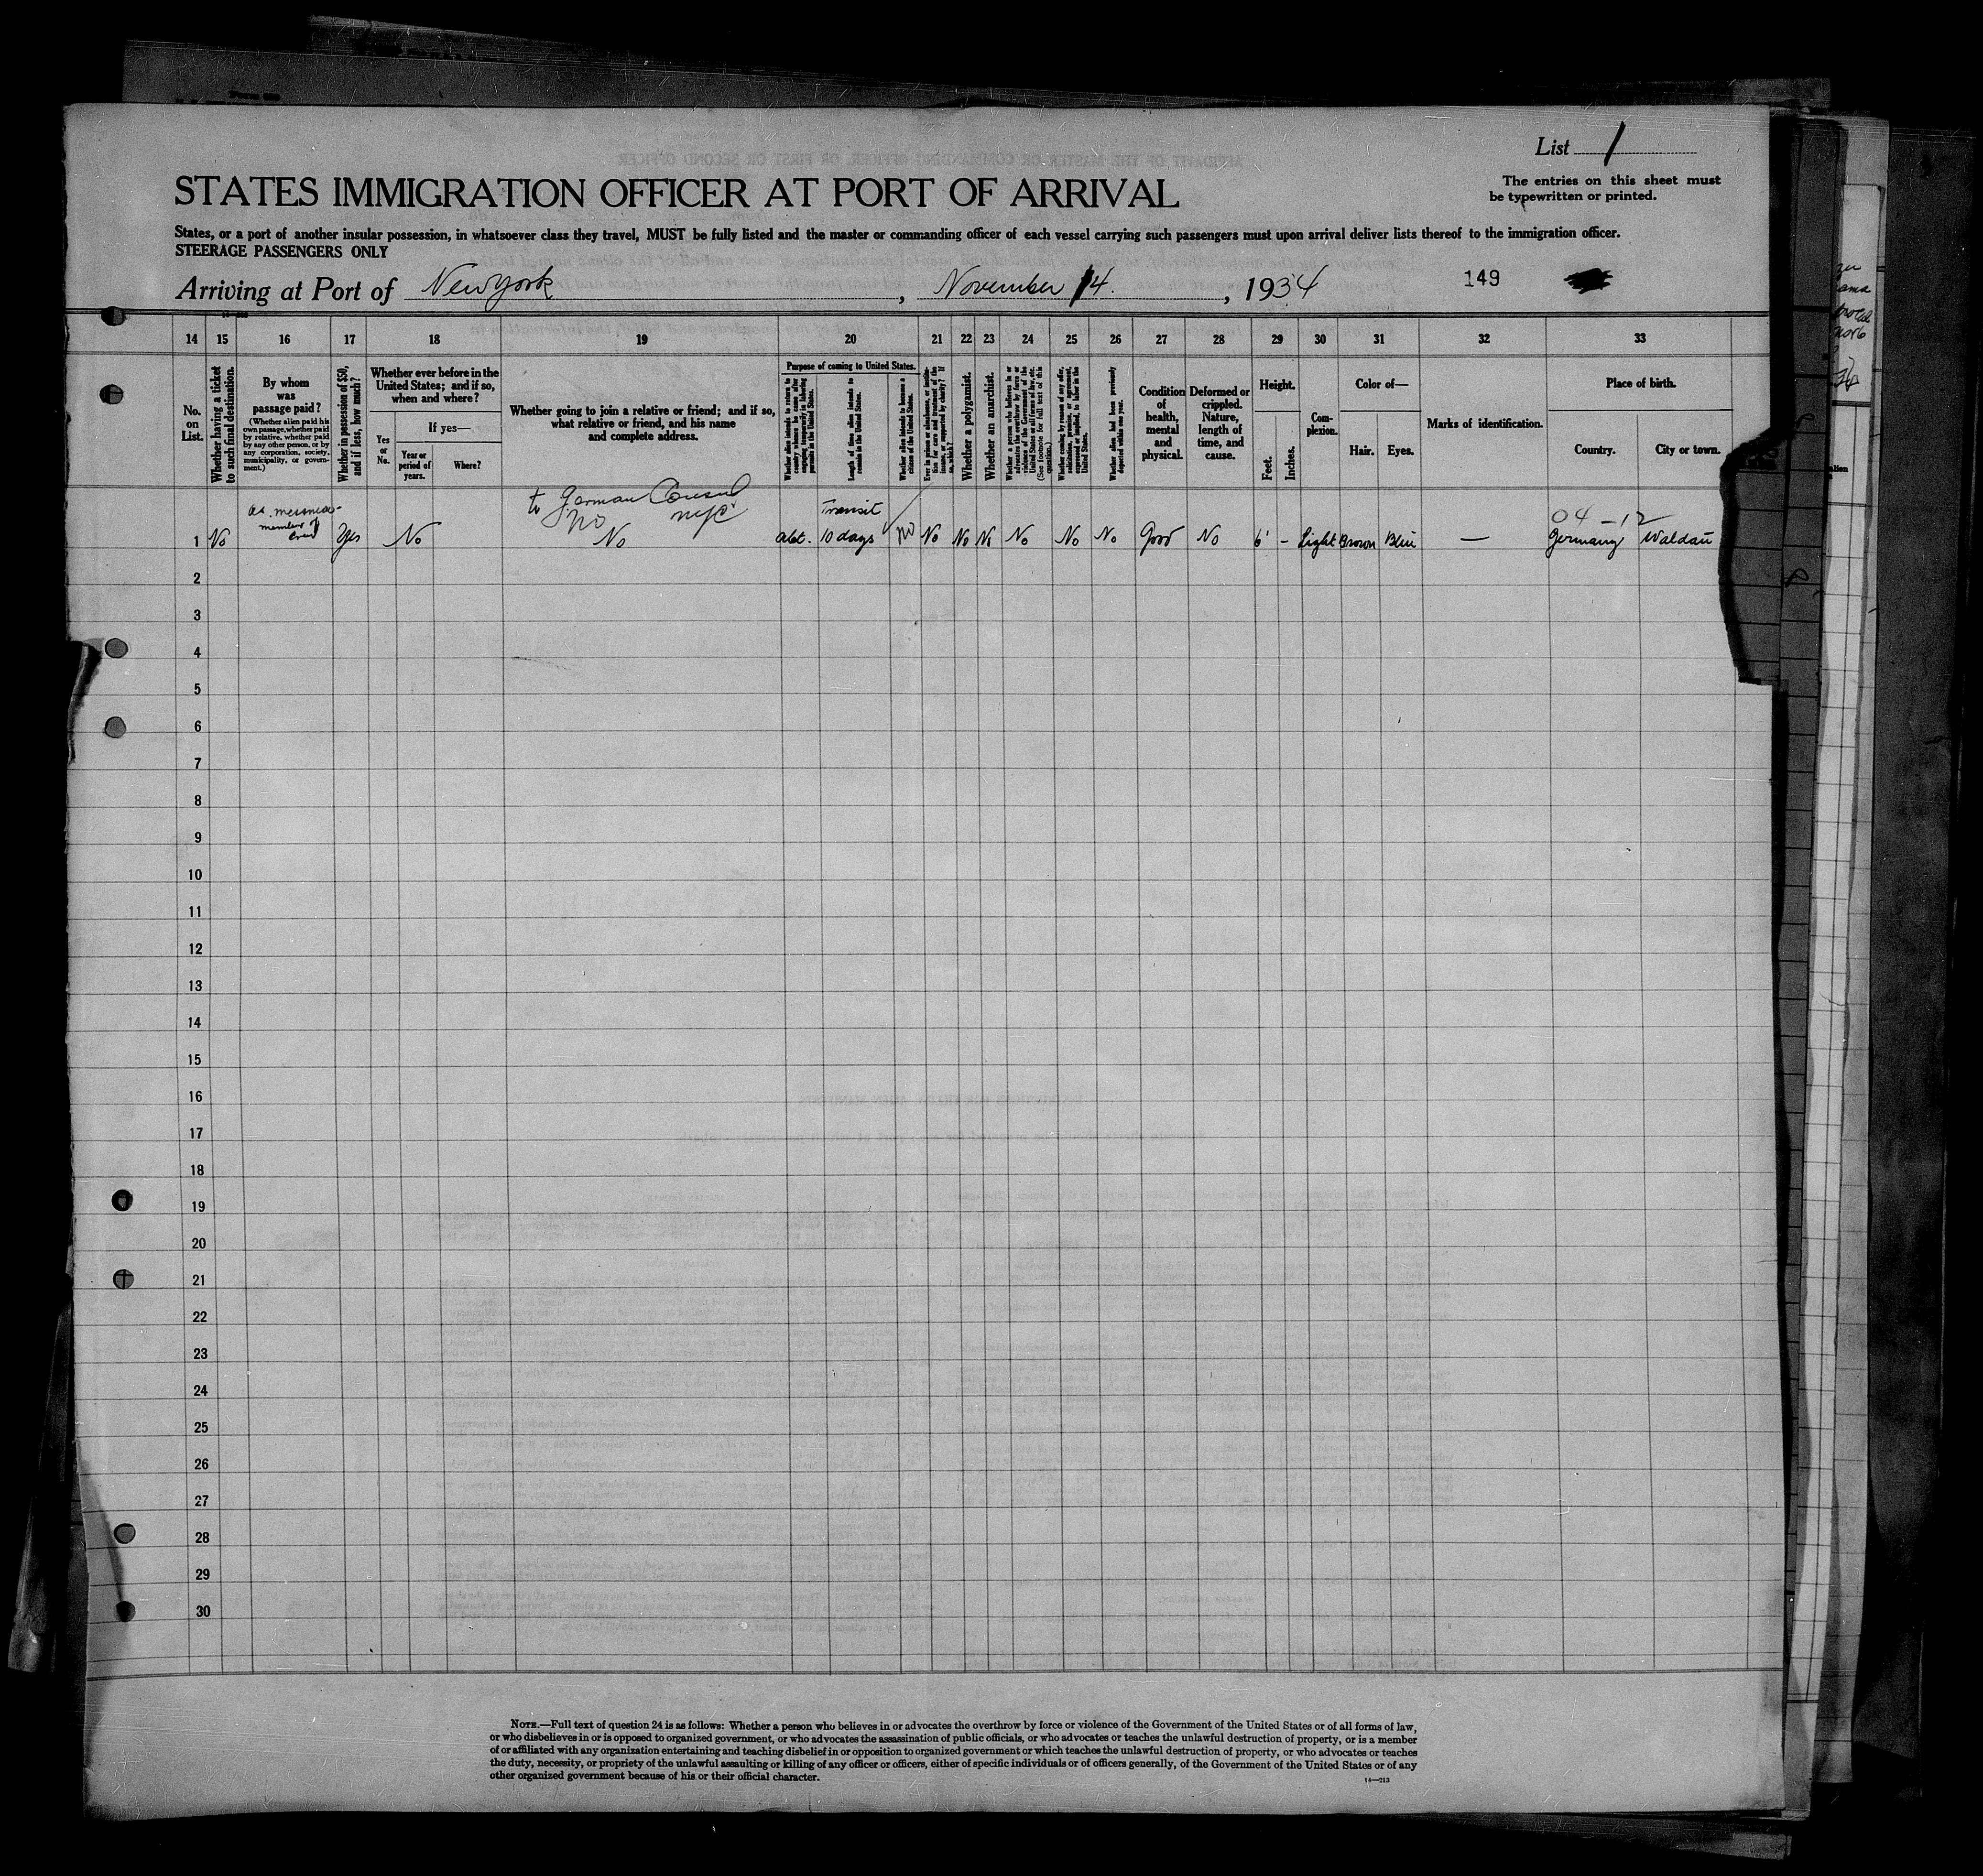 List 1
STATES IMMIGRATION OFFICER AT PORT OF ARRIVAL
The entries on this sheet must
be typewritten or printed.
States, or a port of another insular possession, in whatsoever class they travel, MUST be fully listed and the master or commanding officer of each vessel carrying such passengers must upon arrival deliver lists thereof to the immigration officer.
STEERAGE PASSENGERS ONLY
Arriving at Port of New York, November 14. , 1934
149
14 15 16 17 18 19 20 21 22 23 24 25 26 27 28 29 30 31 32 33
No.
on
List.
Whether having a ticket
to such final destination.
By whom
was
passage paid?
(Whether alien paid his
own passage, whether paid
by relative, whether paid
by any other person, or by
any corporation, society,
municipality, or govern-
ment.)
Whether in possession of $50,
and if less, how much?
Whether ever before in the
United States; and if so,
when and where?
Yes
or
No.
If yes—
Year or
period of
years.
Where?
Whether going to join a relative or friend; and if so,
what relative or friend, and his name
and complete address.
Purpose of coming to United States.
Whether alien intends to return to
country whence he came after
engaging temporarily in laboring
pursuits in the United States.
Length of time alien intends to
remain in the United States.
Whether alien intends to become a
citizen of the United States.
Ever in prison or almshouse, or institu-
tion for care and treatment of the
insane, or supported by charity? If
so, which?
Whether a polygamist.
Whether an anarchist.
Whether a person who believes in or
advocates the overthrow by force or
violence of the Government of the
United States or all forms of law, etc.
(See footnote for full text of this
question.)
Whether coming by reason of any offer,
solicitation, promise, or agreement,
expressed or implied, to labor in the
United States.
Whether alien had been previously
deported within one year.
Condition
of
health,
mental
and
physical.
Deformed or
crippled.
Nature,
length of
time, and
cause.
Height.
Feet.
Inches.
Com-
plexion.
Color of—
Hair. Eyes.
Marks of identification.
Place of birth.
Country. City or town.
to German Consul
No NYC
Transit
04 - 12
1 No member of crew Yes No No 10 days No No No No No No No Good No 6' - Light Brown Blue — Germany Waldau
2
3
4
5
6
7
8
9
10
11
12
13
14
15
16
17
18
19
20
21
22
23
24
25
26
27
28
29
30
NOTE.—Full text of question 24 is as follows: Whether a person who believes in or advocates the overthrow by force or violence of the Government of the United States or of all forms of law,
or who disbelieves in or is opposed to organized government, or who advocates the assassination of public officials, or who advocates or teaches the unlawful destruction of property, or is a member
of or affiliated with any organization entertaining and teaching disbelief in or opposition to organized government or which teaches the unlawful destruction of property, or who advocates or teaches
the duty, necessity, or propriety of the unlawful assaulting or killing of any officer or officers, either of specific individuals or of officers generally, of the Government of the United States or of any
other organized government because of his or their official character.
14—213